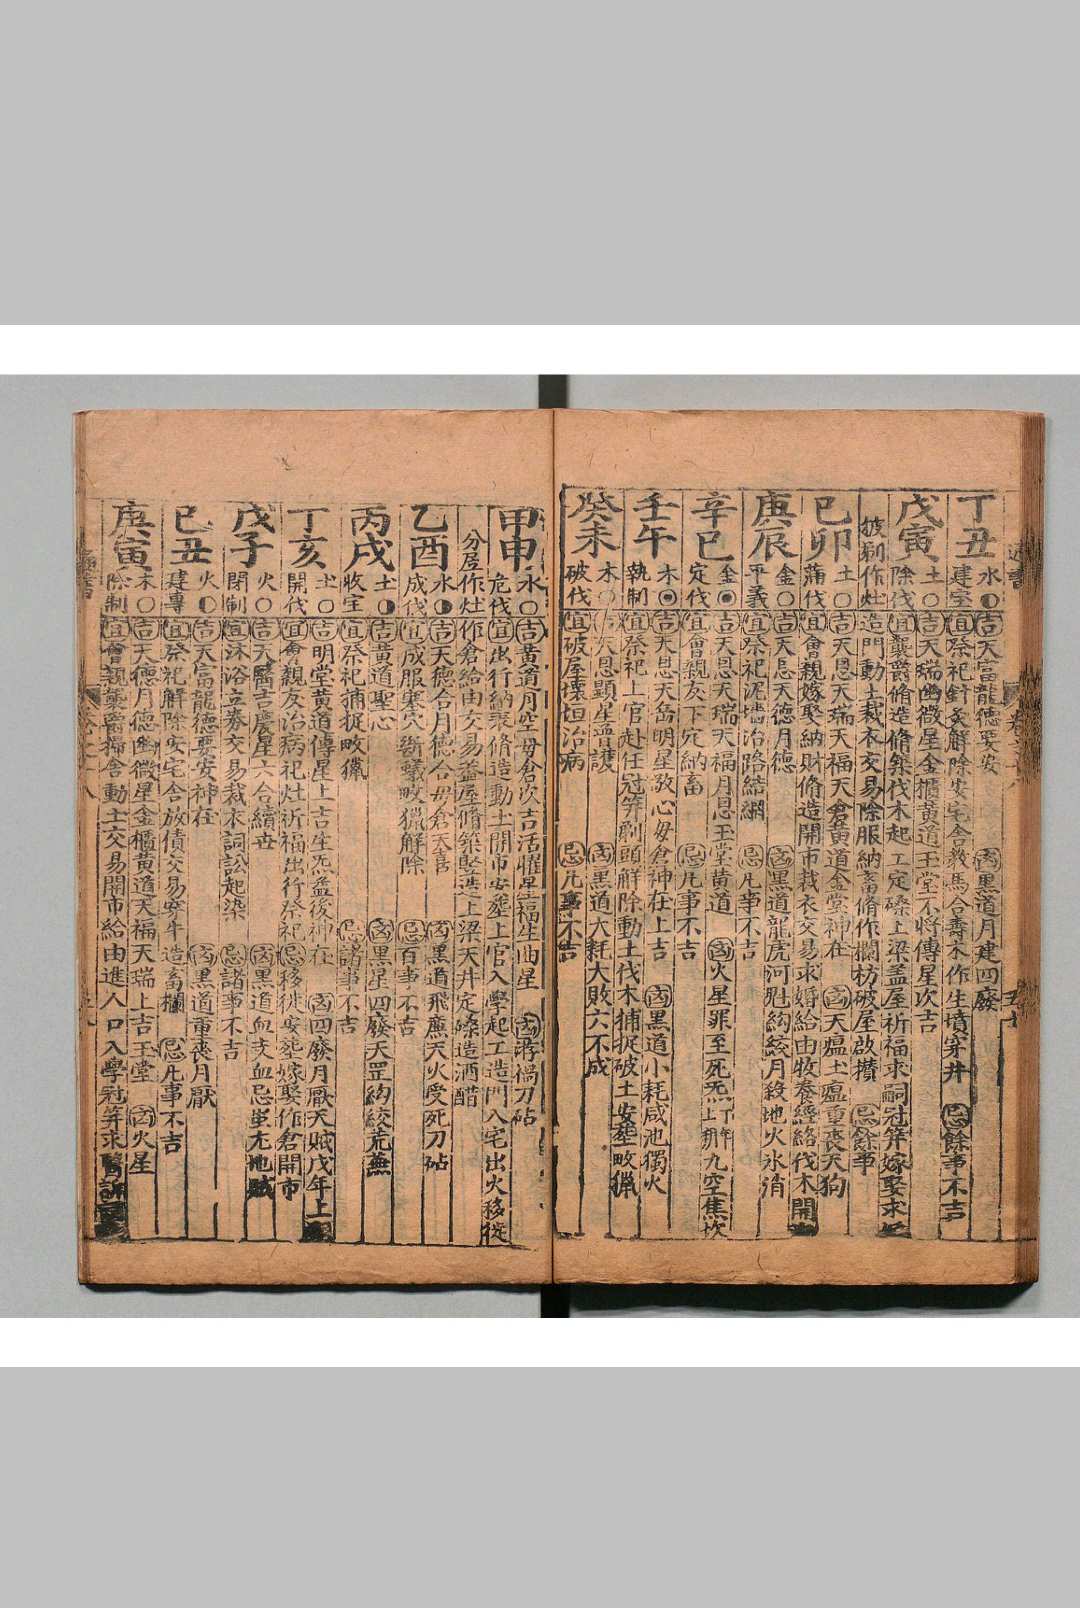 丁丑
水 吉天富龍德要安 凶黑道月建四廢
建宝 宜祭祀針灸解除安宅舍教馬合壽木作生墳穿井 忌餘事不吉
戊寅
土 吉天瑞幽微星金櫃黃道玉堂不將傳星次吉
除伐 宜襲爵脩造脩築伐木起工定磉上梁盖屋祈福求嗣冠笄嫁娶求
披剃作灶造門動土裁衣交易除服納畜脩作欄枋破屋啟攢 忌餘事
己卯
土 吉天恩天瑞天福天倉黃道金堂神在 凶天瘟土瘟重喪天狗
滿伐 宜會親嫁娶納財脩造開市裁衣交易求婚給由牧養經絡伐木開
庚辰
金 吉天恩天德月德 凶黑道龍虎河魁絇絞月殺地火氷消
平義 宜祭祀泥墻治路結網 忌凡事不吉
辛巳
金 吉天恩天瑞天福月恩玉堂黃道 凶火星罪至死炁 九空焦坎
定伐 宜會親友下定納畜 忌凡事不吉
壬午
木 吉天恩天岳明星敬心母倉神在上吉 凶黑道小耗咸池獨火
執制 宜祭祀上官赴任冠笄剃頭解除動土伐木捕捉破土安塟畋獵
癸未
木 吉天恩顯星普護 凶黑道大耗大敗六不成
破伐 宜破屋壞垣治病 忌凡事不吉
甲申
水 吉黃道月空母倉次吉活曜星福生曲星 凶游禍刀砧
危伐 宜出行納采脩造動土開市安塟上官入學起工造門入宅出火移徙
分居作灶作倉給由交易盖屋脩築竪造上梁天井定磉造酒醋
乙酉
水 吉天德合月德合母倉天喜 凶黑道飛廉天火受死刀砧
成伐 宜成服塞穴斷蟻畋獵解除 忌百事不吉
丙戌
土 吉黃道聖心 凶黑星四廢天罡絇絞荒蕪
收宝 宜祭祀捕捉畋獵 忌諸事不吉
丁亥
土 吉明堂黃道傳星上吉生炁益後神在 凶四廢月厭天賊戊年上
開伐 宜會親友治病祀灶祈福出行祭祀 忌移徙安塟嫁娶作倉開市
戊子
火 吉天醫吉慶星六合續世 凶黑道血支血忌 地賊
閉制 宜沐浴立券交易裁衣詞訟起染 忌諸事不吉
己丑
火 吉天富龍德要安神在 凶黑道重喪月厭
建專 宜祭祀解除安宅舍放債交易穿牛造畜欄 忌凡事不吉
庚寅
木 吉天德月德幽微星金櫃黃道天福天瑞上吉玉堂 凶火星
除制 宜會親襲爵掃舍動土交易開市給由進人口入學冠笄求醫訴